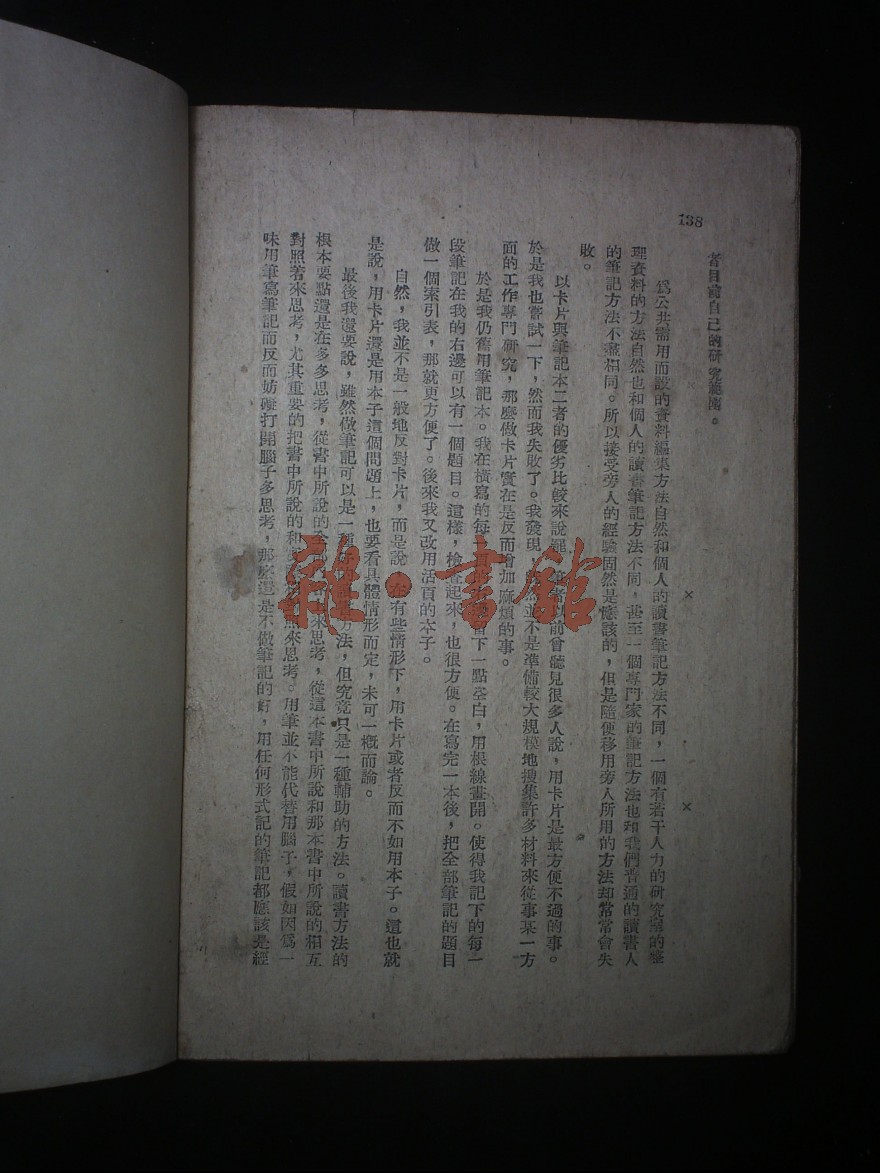 138
者目前自己的研究範圍。
爲公共需用而設的資料編集方法自然和個人的讀書筆記方法不同，一個有若干人力的研究室的整
理資料的方法自然也和個人的讀書筆記方法不同，甚至一個專門家的筆記方法也和我們普通的讀書人
的筆記方法不盡相同。所以接受旁人的經驗固然是應該的，但是隨便移用旁人所用的方法却常常會失
敗。
以卡片與筆記本二者的優劣比較來說罷，筆者以前曾聽見很多人說，用卡片是最方便不過的事。
於是我也嘗試一下，然而我失敗了。我發現，並不是準備較大規模地搜集許多材料來從事某一方
面的工作專門研究，那麼做卡片實在是反而增加麻煩的事。
於是我仍舊用筆記本。我在橫寫的每一下一點空白，用根線畫開。使得我記下的每一
段筆記在我的右邊可以有一個題目。這樣，檢查起來，也很方便。在寫完一本後，把全部筆記的題目
做一個索引表，那就更方便了。後來我又改用活頁的本子。
自然，我並不是一般地反對卡片，而是說，在有些情形下，用卡片或者反而不如用本子。這也就
是說，用卡片還是用本子這個問題上，也要看具體情形而定，未可一概而論。
最後我還要說，雖然做筆記可以是一種方法，但究竟只是一種輔助的方法。讀書方法的
根本要點還是在多多思考，從書中所說的來思考，從這本書中所說和那本書中所說的相互
對照着來思考，尤其重要的把書中所說的和照來思考。用筆並不能代替用腦子，假如因爲一
味用筆寫筆記而反而妨礙打開腦子多思考，那麼還是不做筆記的好，用任何形式記的筆記都應該是經
雜·書館